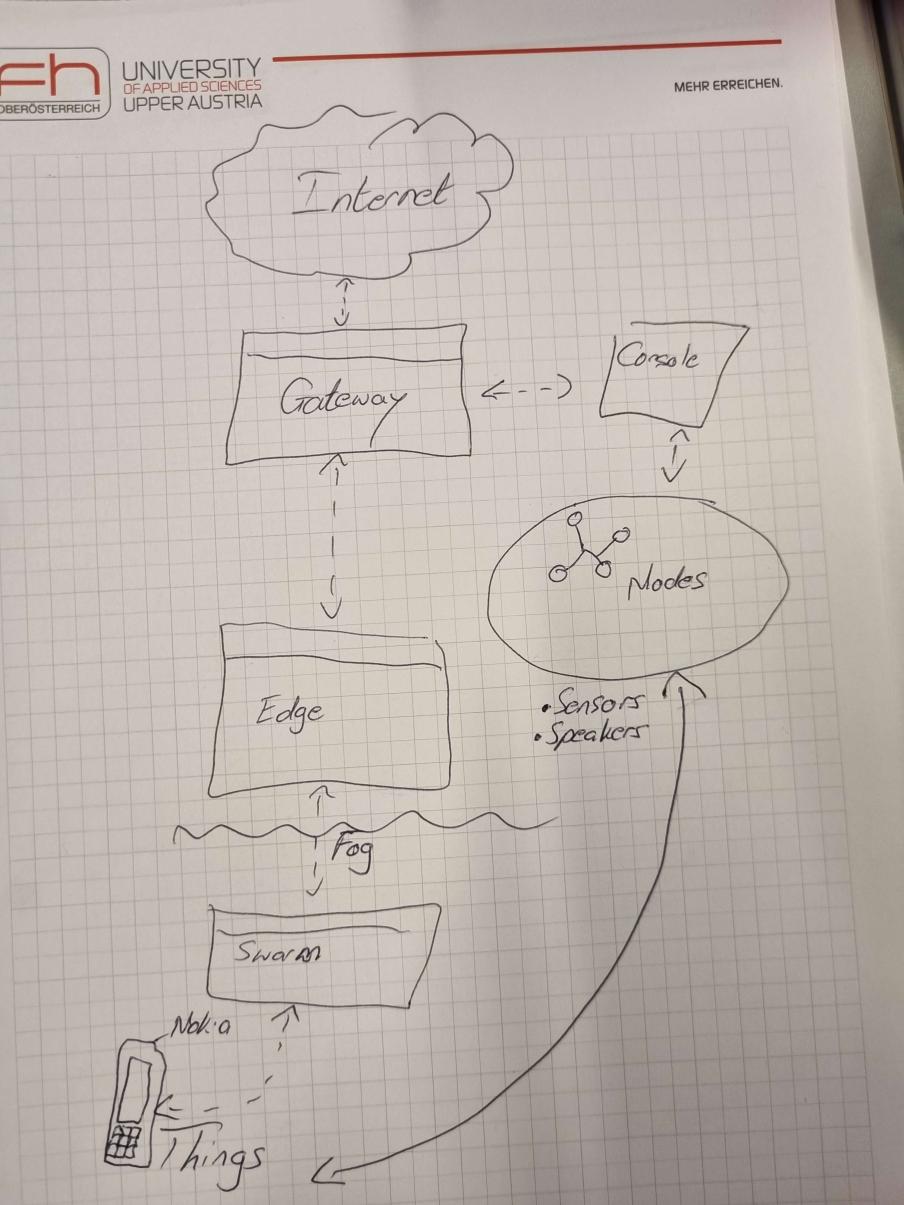 Fh
OBERÖSTERREICH
UNIVERSITY
OF APPLIED SCIENCES
UPPER AUSTRIA
MEHR ERREICHEN.
Internet
Gateway
Console
Nodes
• Sensors
• Speakers
Edge
Fog
Swarm
Nokia
Things